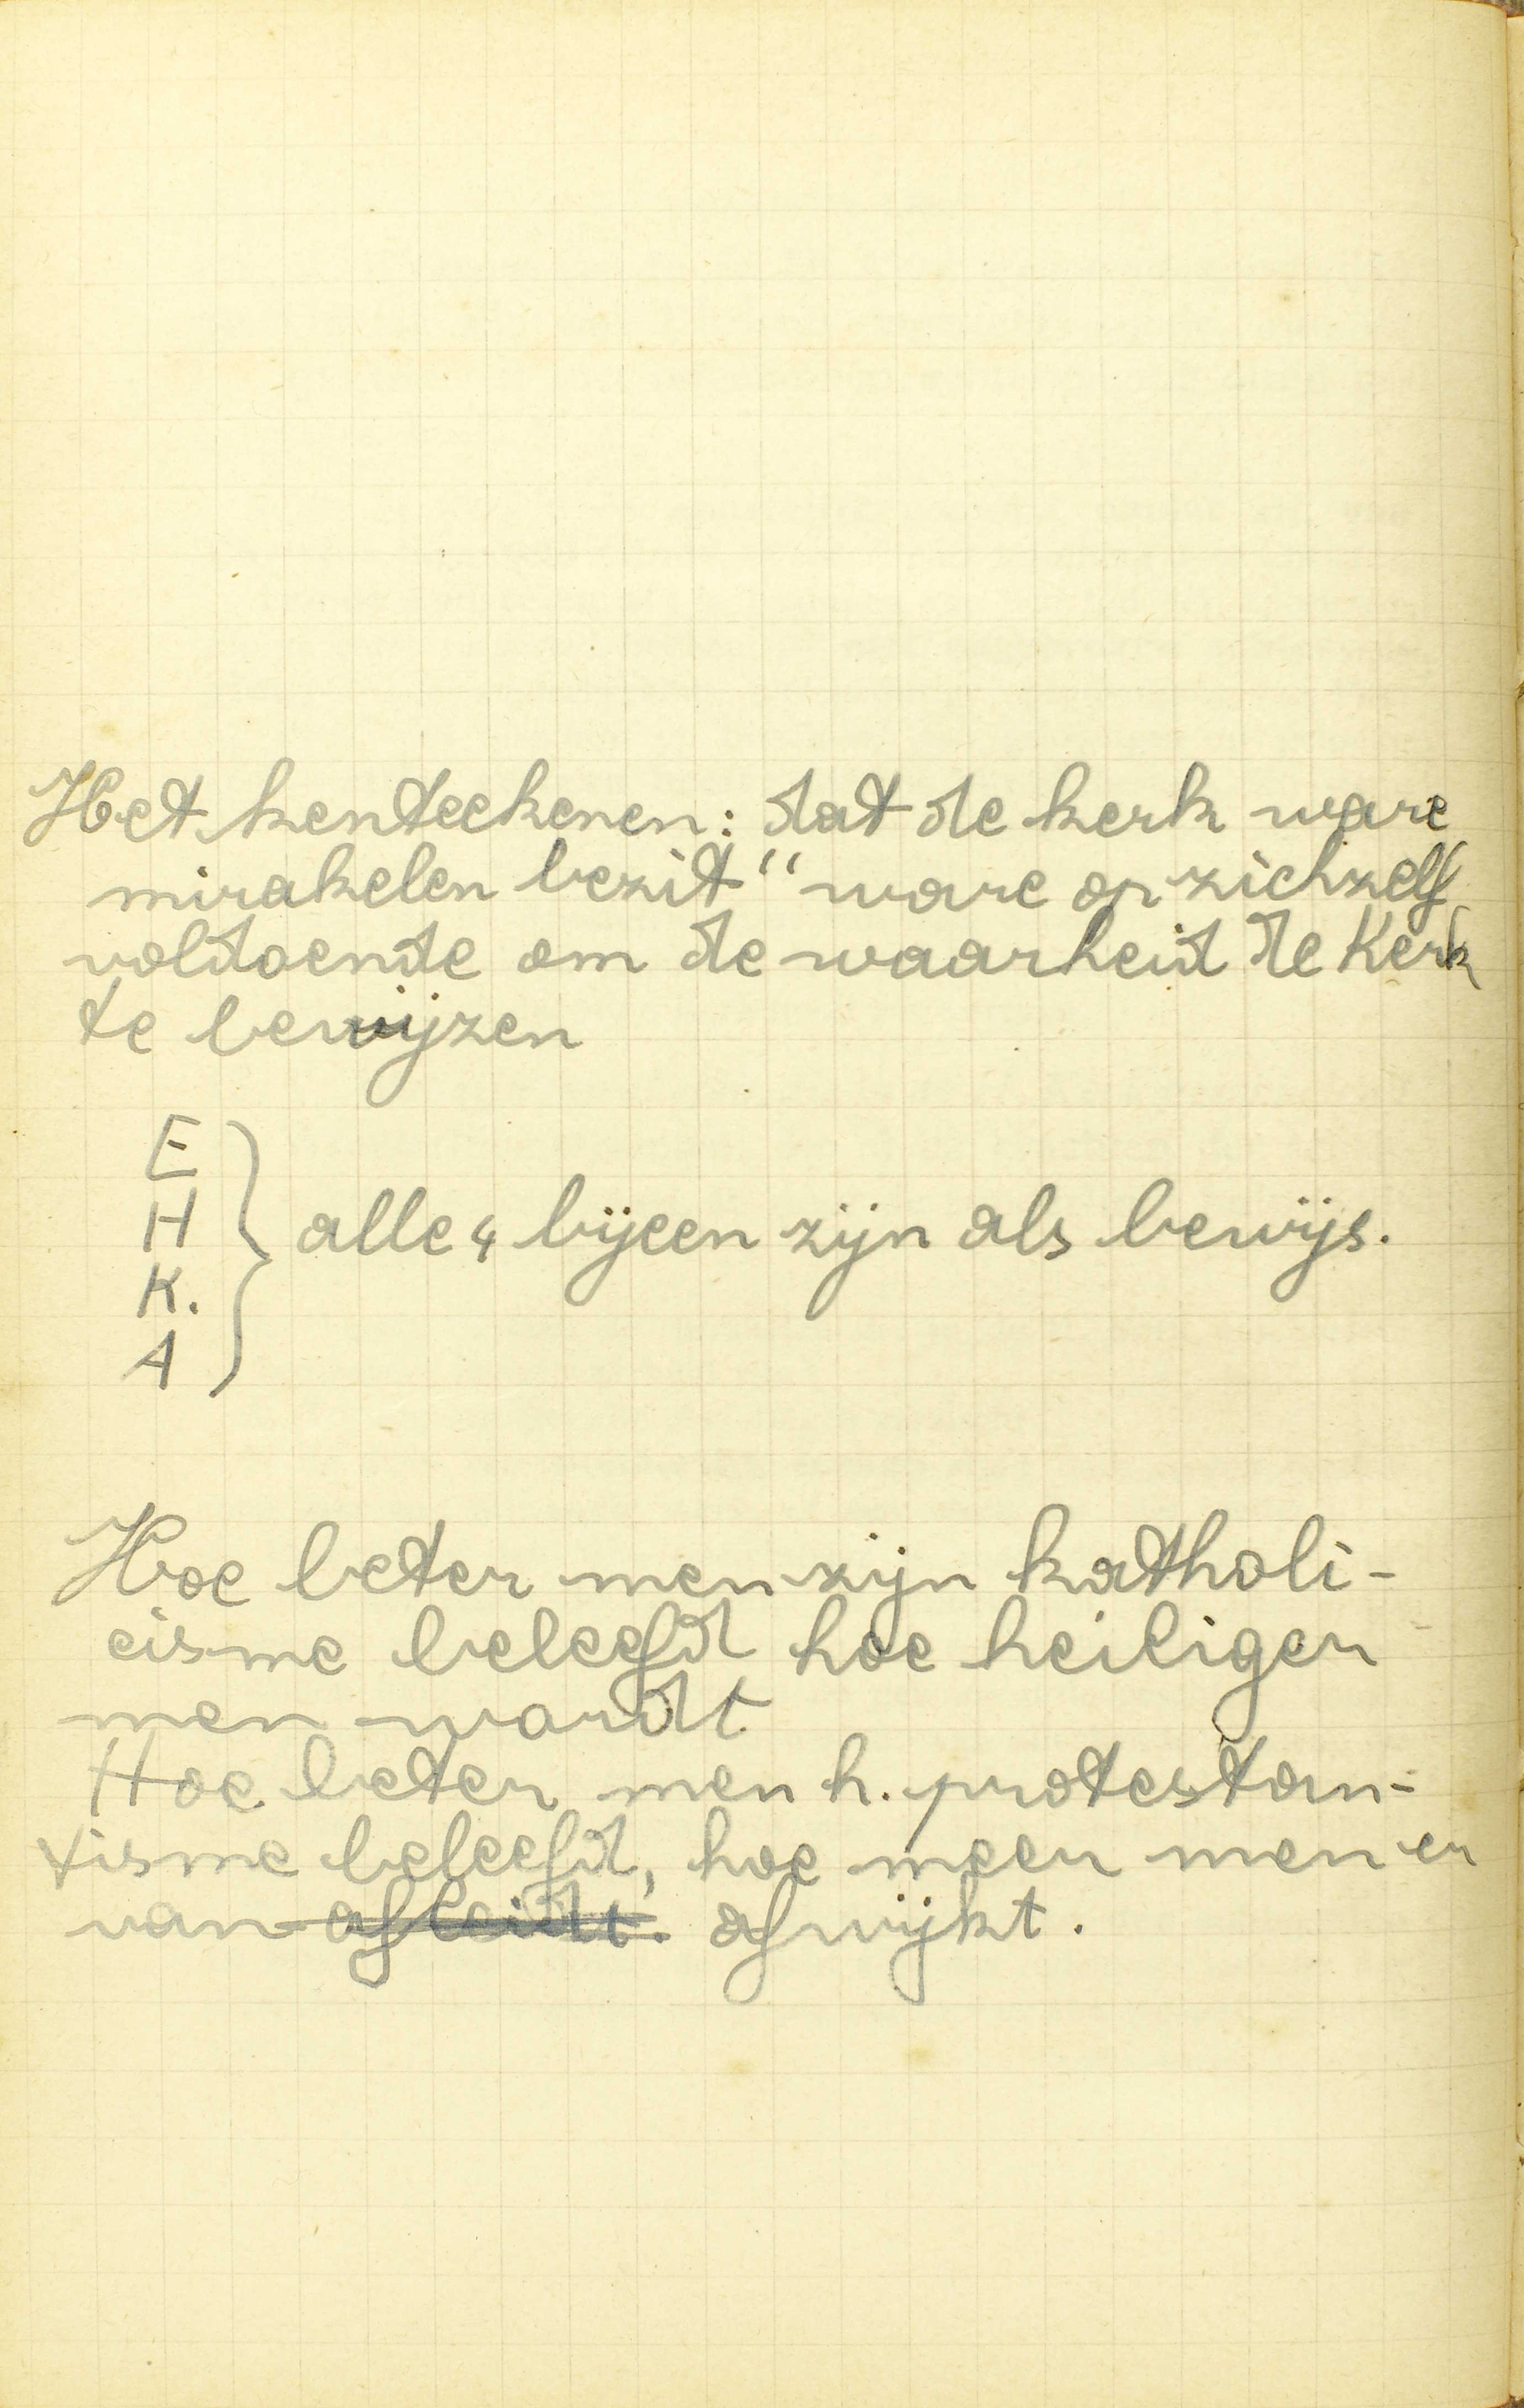 Het kenteekenen: dat de kerk ware
mirakelen bezit" ware op zichzelf
voldoende om de waarheid de Kerk
te bewijzen
E
H
K.
A
} alle 4 bijeen zijn als bewijs.
Hoe beter men zijn katholi-
cisme beleefd hoe heiliger
men wordt.
Hoe beter men h. protestan-
tisme beleefd, hoe meer men er
van afleidt. afwijkt.